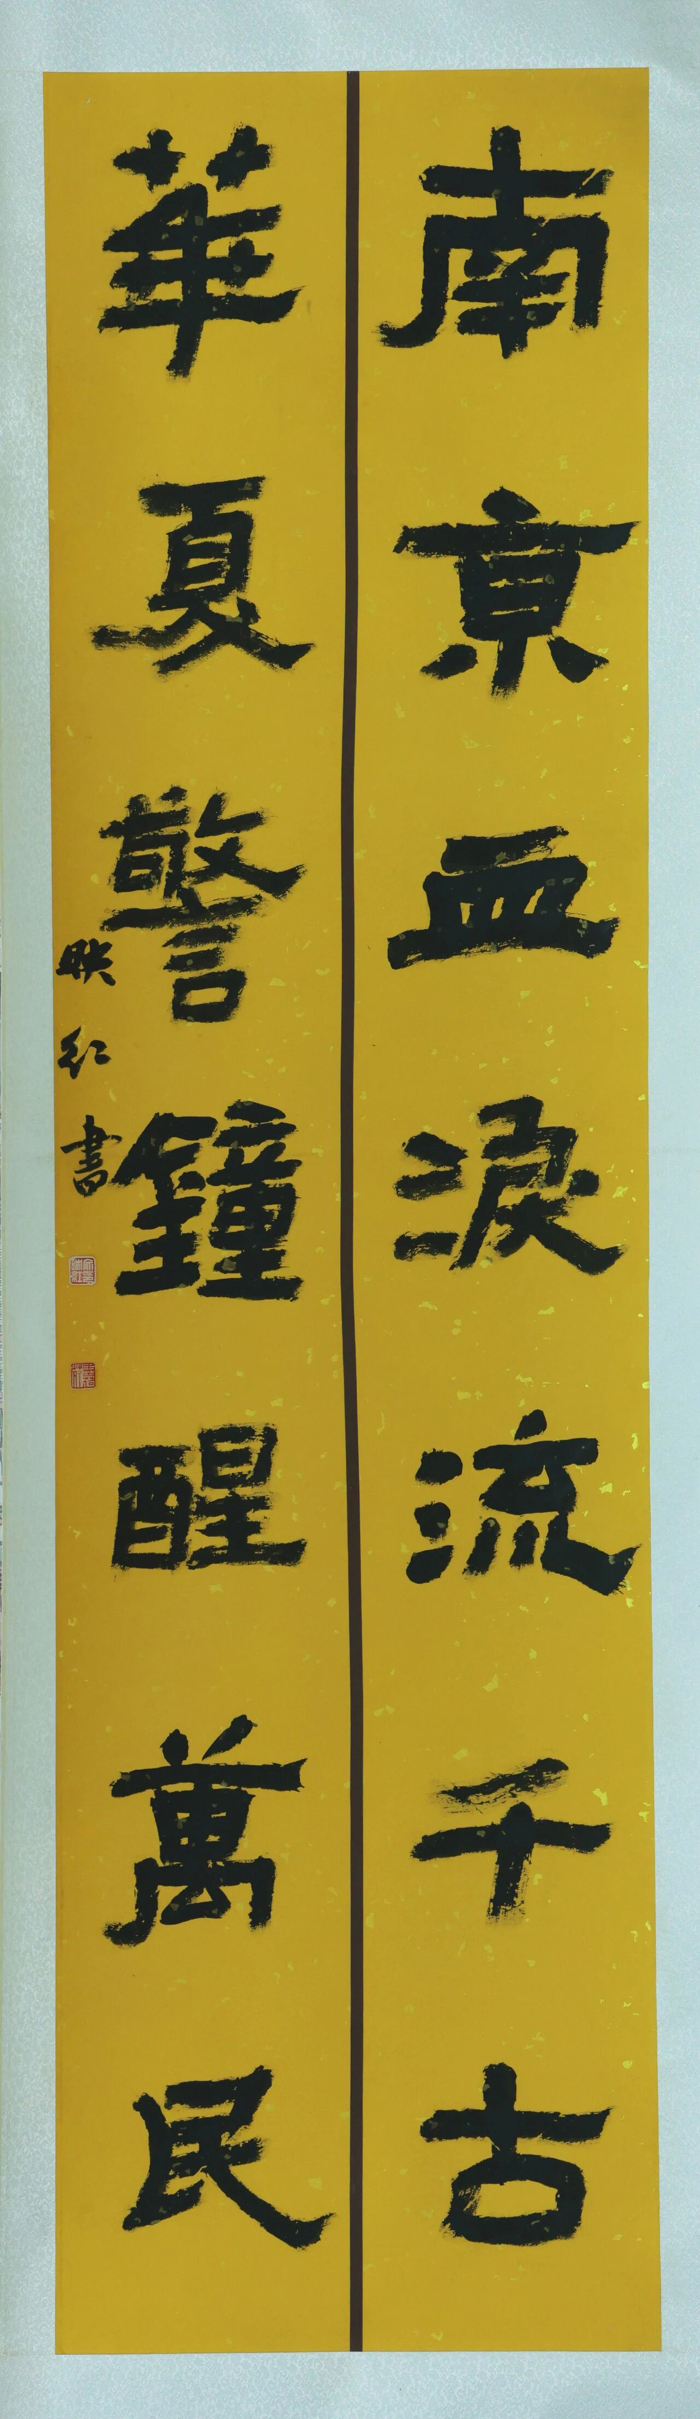 南京血淚流千古
華夏警鐘醒萬民
映紅書